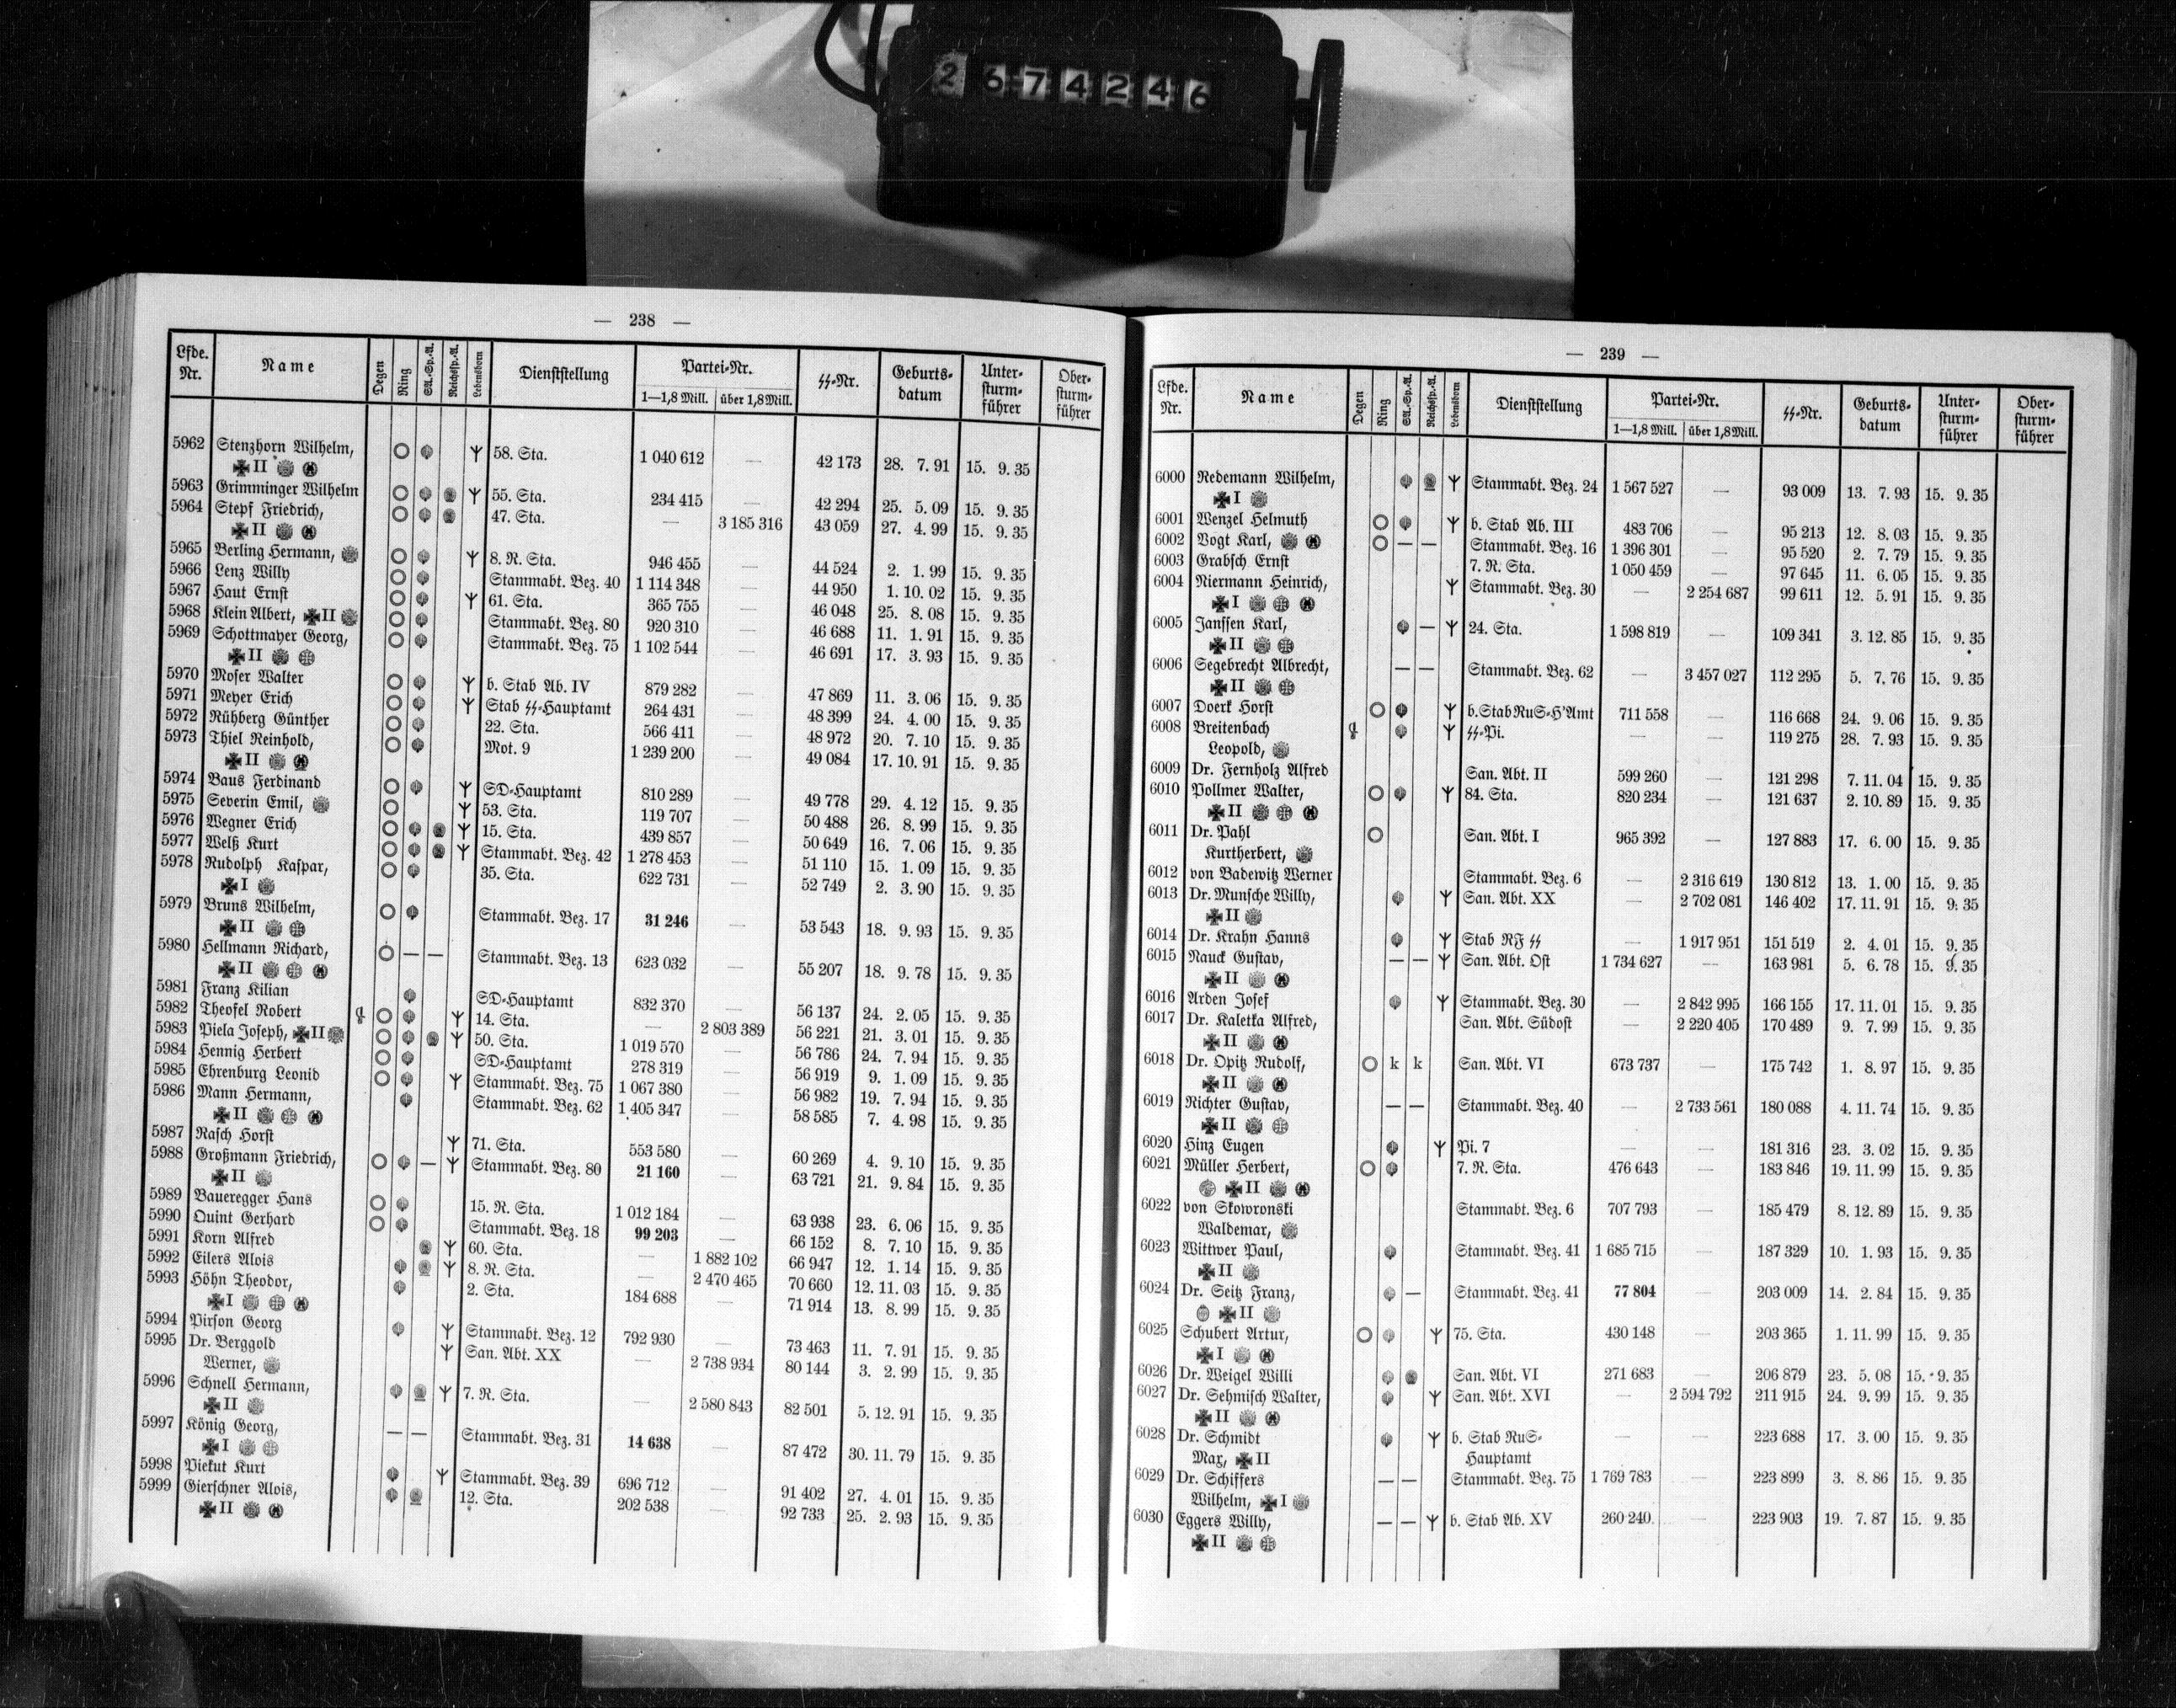 2674246
— 238 —
Lfde. Nr. Name Degen Ring SA.-Sp.-A. Reichssp.-A. Lebensborn Dienststellung Partei-Nr. 1—1,8 Mill. über 1,8 Mill. SS-Nr. Geburts-datum Unter-sturm-führer Ober-sturm-führer
5962 Stenzhorn Wilhelm, 58. Sta. 1 040 612 — 42 173 28. 7. 91 15. 9. 35
II
5963 Grimminger Wilhelm 55. Sta. 234 415 — 42 294 25. 5. 09 15. 9. 35
5964 Stepf Friedrich, 47. Sta. — 3 185 316 43 059 27. 4. 99 15. 9. 35
II
5965 Berling Hermann, 8. R. Sta. 946 455 — 44 524 2. 1. 99 15. 9. 35
5966 Lenz Willy Stammabt. Bez. 40 1 114 348 — 44 950 1. 10. 02 15. 9. 35
5967 Haut Ernst 61. Sta. 365 755 — 46 048 25. 8. 08 15. 9. 35
5968 Klein Albert, II Stammabt. Bez. 80 920 310 — 46 688 11. 1. 91 15. 9. 35
5969 Schottmayer Georg, Stammabt. Bez. 75 1 102 544 — 46 691 17. 3. 93 15. 9. 35
II
5970 Moser Walter b. Stab Ab. IV 879 282 — 47 869 11. 3. 06 15. 9. 35
5971 Meyer Erich Stab SS-Hauptamt 264 431 — 48 399 24. 4. 00 15. 9. 35
5972 Rühberg Günther 22. Sta. 566 411 — 48 972 20. 7. 10 15. 9. 35
5973 Thiel Reinhold, Mot. 9 1 239 200 — 49 084 17. 10. 91 15. 9. 35
II
5974 Baus Ferdinand SD-Hauptamt 810 289 — 49 778 29. 4. 12 15. 9. 35
5975 Severin Emil, 53. Sta. 119 707 — 50 488 26. 8. 99 15. 9. 35
5976 Wegner Erich 15. Sta. 439 857 — 50 649 16. 7. 06 15. 9. 35
5977 Welß Kurt Stammabt. Bez. 42 1 278 453 — 51 110 15. 1. 09 15. 9. 35
5978 Rudolph Kaspar, 35. Sta. 622 731 — 52 749 2. 3. 90 15. 9. 35
I
5979 Bruns Wilhelm, Stammabt. Bez. 17 31 246 — 53 543 18. 9. 93 15. 9. 35
II
5980 Hellmann Richard, — — Stammabt. Bez. 13 623 032 — 55 207 18. 9. 78 15. 9. 35
II
5981 Franz Kilian SD-Hauptamt 832 370 — 56 137 24. 2. 05 15. 9. 35
5982 Theofel Robert 14. Sta. — 2 803 389 56 221 21. 3. 01 15. 9. 35
5983 Piela Joseph, II 50. Sta. 1 019 570 — 56 786 24. 7. 94 15. 9. 35
5984 Hennig Herbert SD-Hauptamt 278 319 — 56 919 9. 1. 09 15. 9. 35
5985 Ehrenburg Leonid Stammabt. Bez. 75 1 067 380 — 56 982 19. 7. 94 15. 9. 35
5986 Mann Hermann, Stammabt. Bez. 62 1 405 347 — 58 585 7. 4. 98 15. 9. 35
II
5987 Rasch Horst 71. Sta. 553 580 — 60 269 4. 9. 10 15. 9. 35
5988 Großmann Friedrich, — Stammabt. Bez. 80 21 160 — 63 721 21. 9. 84 15. 9. 35
II
5989 Baueregger Hans 15. R. Sta. 1 012 184 — 63 938 23. 6. 06 15. 9. 35
5990 Quint Gerhard Stammabt. Bez. 18 99 203 — 66 152 8. 7. 10 15. 9. 35
5991 Korn Alfred 60. Sta. — 1 882 102 66 947 12. 1. 14 15. 9. 35
5992 Eilers Alois 8. R. Sta. — 2 470 465 70 660 12. 11. 03 15. 9. 35
5993 Höhn Theodor, 2. Sta. 184 688 — 71 914 13. 8. 99 15. 9. 35
I
5994 Pirson Georg Stammabt. Bez. 12 792 930 — 73 463 11. 7. 91 15. 9. 35
5995 Dr. Berggold San. Abt. XX — 2 738 934 80 144 3. 2. 99 15. 9. 35
Werner,
5996 Schnell Hermann, 7. R. Sta. — 2 580 843 82 501 5. 12. 91 15. 9. 35
II
5997 König Georg, — — Stammabt. Bez. 31 14 638 — 87 472 30. 11. 79 15. 9. 35
I
5998 Piekut Kurt Stammabt. Bez. 39 696 712 — 91 402 27. 4. 01 15. 9. 35
5999 Gierschner Alois, 12. Sta. 202 538 — 92 733 25. 2. 93 15. 9. 35
II
— 239 —
Lfde. Nr. Name Degen Ring SA.-Sp.-A. Reichssp.-A. Lebensborn Dienststellung Partei-Nr. 1—1,8 Mill. über 1,8 Mill. SS-Nr. Geburts-datum Unter-sturm-führer Ober-sturm-führer
6000 Redemann Wilhelm, Stammabt. Bez. 24 1 567 527 — 93 009 13. 7. 93 15. 9. 35
I
6001 Wenzel Helmuth b. Stab Ab. III 483 706 — 95 213 12. 8. 03 15. 9. 35
6002 Vogt Karl, — — Stammabt. Bez. 16 1 396 301 — 95 520 2. 7. 79 15. 9. 35
6003 Grabsch Ernst 7. R. Sta. 1 050 459 — 97 645 11. 6. 05 15. 9. 35
6004 Niermann Heinrich, Stammabt. Bez. 30 — 2 254 687 99 611 12. 5. 91 15. 9. 35
I
6005 Janssen Karl, — 24. Sta. 1 598 819 — 109 341 3. 12. 85 15. 9. 35
II
6006 Segebrecht Albrecht, — — Stammabt. Bez. 62 — 3 457 027 112 295 5. 7. 76 15. 9. 35
II
6007 Doerk Horst b.Stab RuS-H'Amt 711 558 — 116 668 24. 9. 06 15. 9. 35
6008 Breitenbach SS-Pi. — — 119 275 28. 7. 93 15. 9. 35
Leopold,
6009 Dr. Fernholz Alfred San. Abt. II 599 260 — 121 298 7. 11. 04 15. 9. 35
6010 Pollmer Walter, 84. Sta. 820 234 — 121 637 2. 10. 89 15. 9. 35
II
6011 Dr. Pahl San. Abt. I 965 392 — 127 883 17. 6. 00 15. 9. 35
Kurtherbert,
6012 von Badewitz Werner Stammabt. Bez. 6 — 2 316 619 130 812 13. 1. 00 15. 9. 35
6013 Dr. Munsche Willy, San. Abt. XX — 2 702 081 146 402 17. 11. 91 15. 9. 35
II
6014 Dr. Krahn Hanns Stab RF SS — 1 917 951 151 519 2. 4. 01 15. 9. 35
6015 Nauck Gustav, — — San. Abt. Ost 1 734 627 — 163 981 5. 6. 78 15. 9. 35
II
6016 Arden Josef Stammabt. Bez. 30 — 2 842 995 166 155 17. 11. 01 15. 9. 35
6017 Dr. Kaletka Alfred, San. Abt. Südost — 2 220 405 170 489 9. 7. 99 15. 9. 35
II
6018 Dr. Opitz Rudolf, k k San. Abt. VI 673 737 — 175 742 1. 8. 97 15. 9. 35
II
6019 Richter Gustav, — — Stammabt. Bez. 40 — 2 733 561 180 088 4. 11. 74 15. 9. 35
II
6020 Hinz Eugen Pi. 7 — — 181 316 23. 3. 02 15. 9. 35
6021 Müller Herbert, 7. R. Sta. 476 643 — 183 846 19. 11. 99 15. 9. 35
II
6022 von Skowronski Stammabt. Bez. 6 707 793 — 185 479 8. 12. 89 15. 9. 35
Waldemar,
6023 Wittwer Paul, Stammabt. Bez. 41 1 685 715 — 187 329 10. 1. 93 15. 9. 35
II
6024 Dr. Seitz Franz, — Stammabt. Bez. 41 77 804 — 203 009 14. 2. 84 15. 9. 35
II
6025 Schubert Artur, 75. Sta. 430 148 — 203 365 1. 11. 99 15. 9. 35
I
6026 Dr. Weigel Willi San. Abt. VI 271 683 — 206 879 23. 5. 08 15. 9. 35
6027 Dr. Sehmisch Walter, San. Abt. XVI — 2 594 792 211 915 24. 9. 99 15. 9. 35
II
6028 Dr. Schmidt b. Stab RuS- — — 223 688 17. 3. 00 15. 9. 35
Max, II Hauptamt
6029 Dr. Schiffers — — Stammabt. Bez. 75 1 769 783 — 223 899 3. 8. 86 15. 9. 35
Wilhelm, I
6030 Eggers Willy, — — b. Stab Ab. XV 260 240 — 223 903 19. 7. 87 15. 9. 35
II